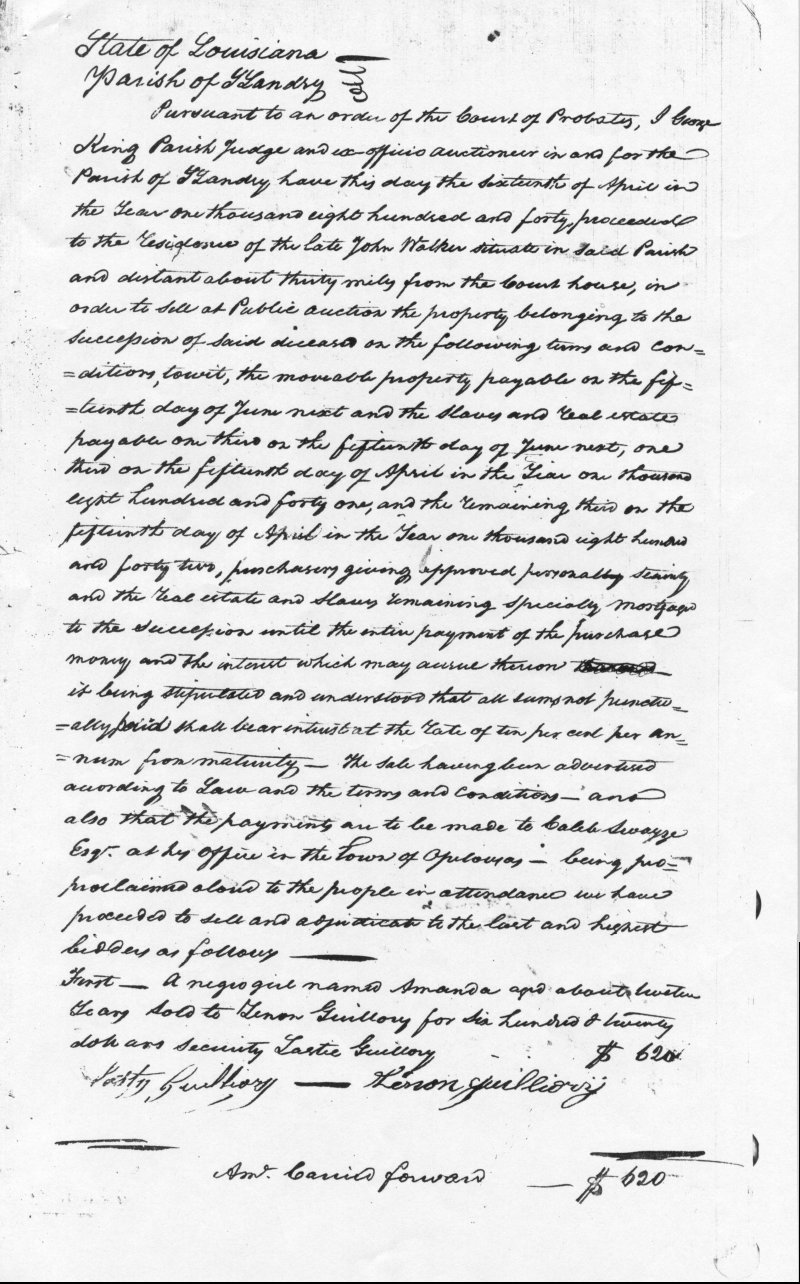 State of Louisiana
Parish of St Landry
Pursuant to an order of the Court of Probates, I George
King Parish Judge and ex-officio auctioneer in and for the
Parish of St Landry have this day the sixteenth of April in
the Year one thousand eight hundred and forty, proceeded
to the Residence of the late John Walker situate in said Parish
and distant about thirty miles from the Court house, in
order to sell at Public auction the property belonging to the
succession of said diceased on the following terms and con=
=ditions, towit, the moveable property payable on the fif=
=teenth day of June next and the slaves and real estate
payable one third on the fifteenth day of June next, one
third on the fifteenth day of April in the Year one thousand
eight hundred and forty one, and the remaining third on the
fifteenth day of April in the Year one thousand eight hundred
and forty two, purchasers giving approved personal security
and the real estate and slaves remaining specially mortgaged
to the succession until the entire payment of the purchase
money and the interest which may accrue thereon
it being stipulated and understood that all sums not punctu=
=ally paid shall bear interest at the rate of ten per cent per an=
=num from maturity — The sale having been advertised
according to Law and the terms and conditions — and
also that the payments are to be made to Caleb Swayze
Esqr. at his office in the Town of Opelousas — being pro=
proclaimed aloud to the people in attendance we have
proceeded to sell and adjudicate to the last and highest
bidders as follows —
First — A negro girl named Amanda aged about twelve
Years sold to Zenon Guillory for six hundred & twenty
dollars security Lastie Guillory $ 620
Lasty Guillory — Zenon guilliory
Amt. Carried forward — $ 620